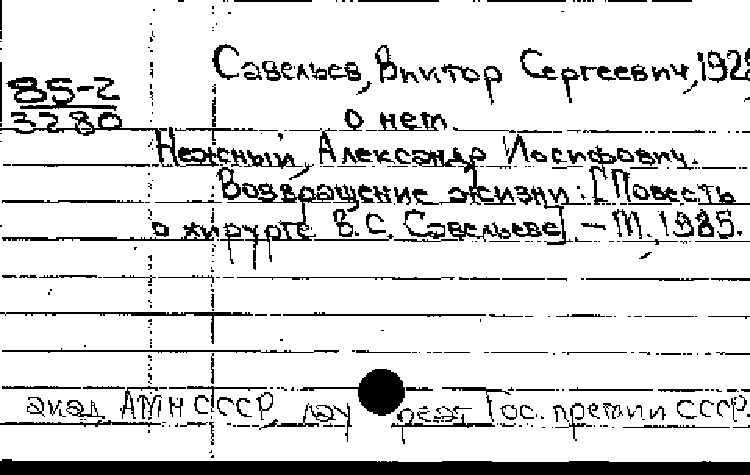 Савельев, Виктор Сергеевич, 1928
85-2
3280
о нем.
Нежный, Александр Иосифович.
Возвращение жизни: [Повесть
о хирурге В.С. Савельеве]. – М., 1985.
акад. АМН СССР, лау реат Гос. премии СССР.